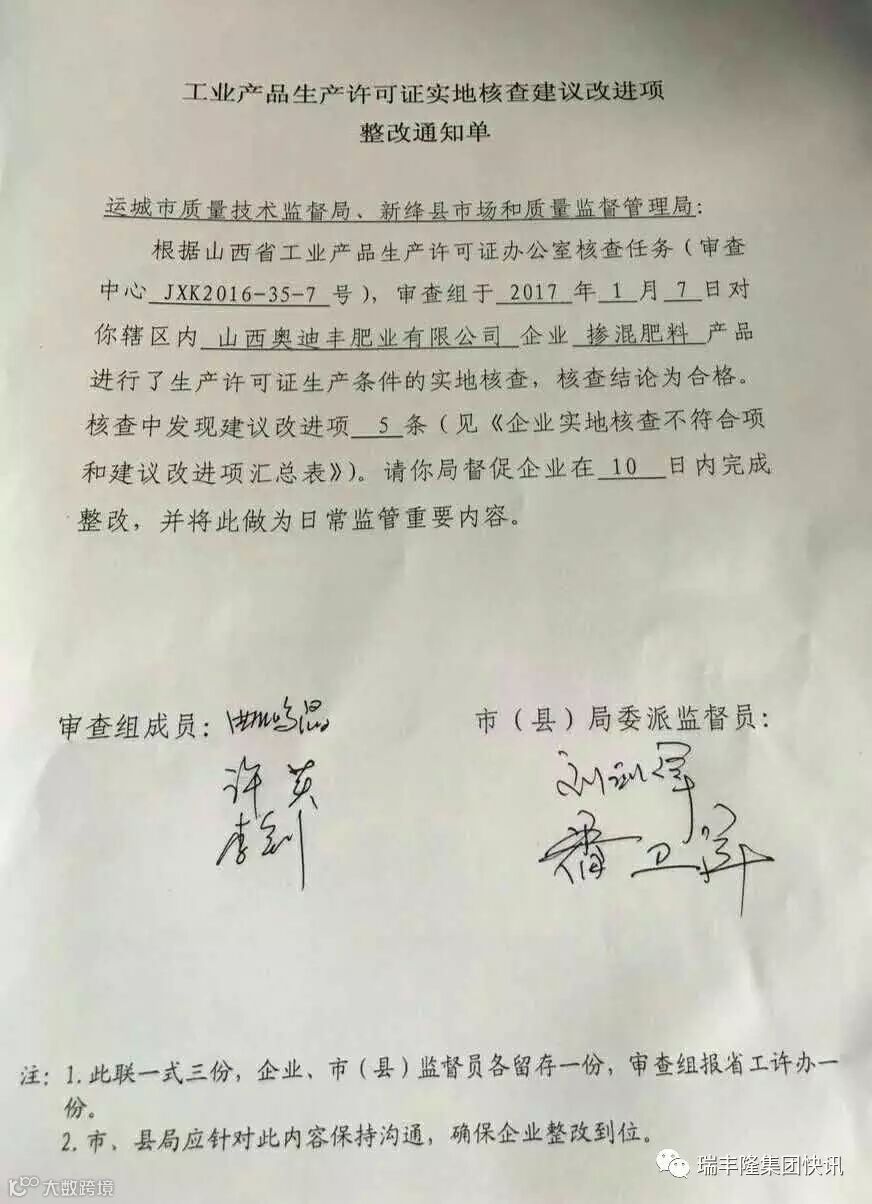 工业产品生产许可证实地核查建议改进项
整改通知单
运城市质量技术监督局、新绛县市场和质量监督管理局:
根据山西省工业产品生产许可证办公室核查任务(审查
中心 JXK2016-35-7 号),审查组于 2017 年 1 月 7 日对
你辖区内 山西奥迪丰肥业有限公司 企业 掺混肥料 产品
进行了生产许可证生产条件的实地核查,核查结论为合格。
核查中发现建议改进项 5 条(见《企业实地核查不符合项
和建议改进项汇总表》)。请你局督促企业在 10 日内完成
整改,并将此做为日常监管重要内容。
审查组成员:
许英
李剑
市(县)局委派监督员:
卫军
注:1.此联一式三份,企业、市(县)监督员各留存一份,审查组报省工许办一
份。
2.市、县局应针对此内容保持沟通,确保企业整改到位。
瑞丰隆集团快讯
大数跨境